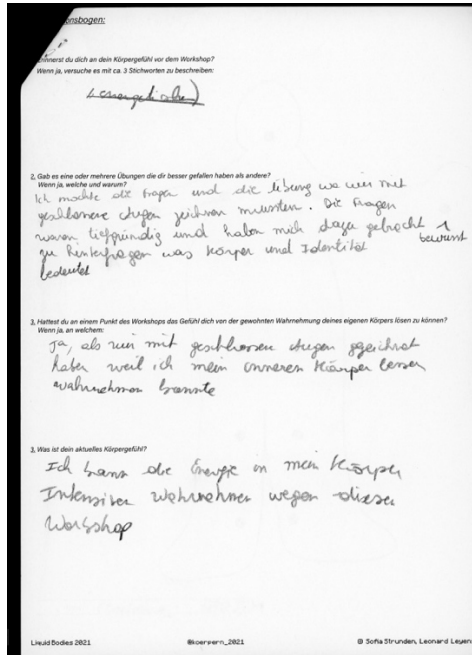 onsbogen:
innerst du dich an dein Körpergefühl vor dem Workshop?
Wenn ja, versuche es mit ca. 3 Stichworten zu beschreiben:
2. Gab es eine oder mehrere Übungen die dir besser gefallen haben als andere?
Wenn ja, welche und warum?
Ich mochte die Fragen und die Übung wo wir mit
geschlossene Augen zeichnen mussten. Die Fragen
waren tiefgründig und haben mich dazu gebracht
bewusst
zu hinterfragen was Körper und Identität
bedeutet
3. Hattest du an einem Punkt des Workshops das Gefühl dich von der gewohnten Wahrnehmung deines eigenen Körpers lösen zu können?
Wenn ja, an welchem:
Ja, als wir mit geschlossen Augen gezeichnet
haben weil ich mein inneren Körper besser
wahrnehmen konnte
3. Was ist dein aktuelles Körpergefühl?
Ich kann die Energie in mein Körper
Intensiver wahrnehmen wegen dieser
Workshop
Liquid Bodies 2021
@koerpern_2021
© Sofia Strunden, Leonard Leyen